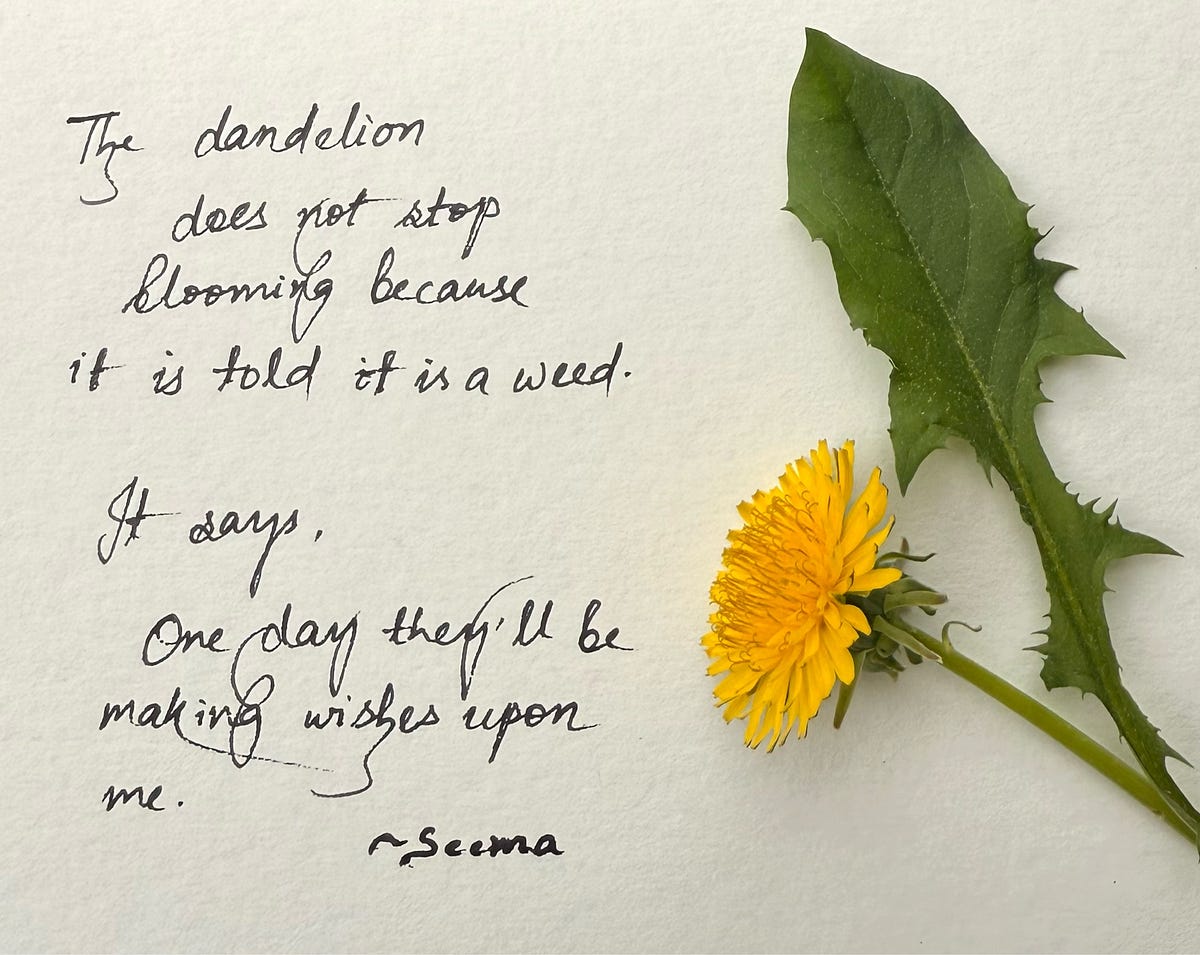 The dandelion
does not stop
blooming because
it is told it is a weed.
It says,
One day they'll be
making wishes upon
me.
~Seema